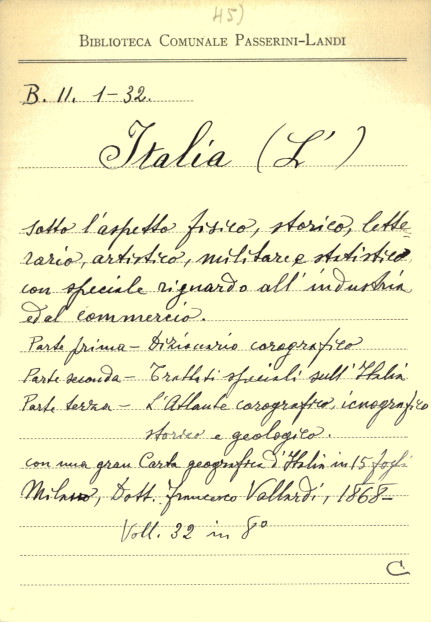 45)
BIBLIOTECA COMUNALE PASSERINI-LANDI
B. II. 1-32.
Italia (L')
sotto l'aspetto fisico, storico, lette
rario, artistico, militare e statistico
con speciale riguardo all'industria
ed al commercio.
Parte prima - Dizionario corografico
Parte seconda - Trattati speciali sull'Italia
Parte terza - L'Atlante corografico, icnografico
storico e geologico.
con una gran Carta geografica d'Italia in 15 fogli
Milano, Dott. Francesco Vallardi, 1868-
Voll. 32 in 8°
C